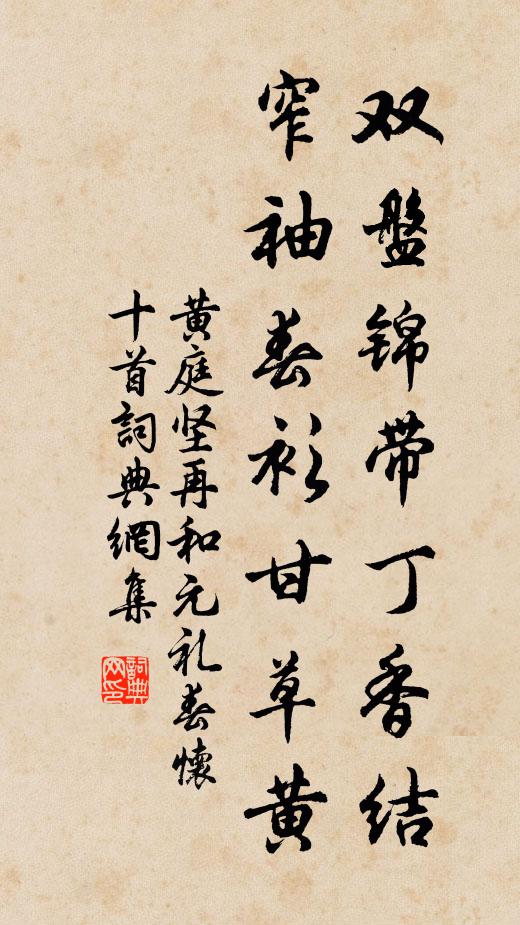 双盤锦带丁香结
窄袖春衫甘草黄
黄庭坚再和元礼春懷
十首詞典網集
詞典
网印